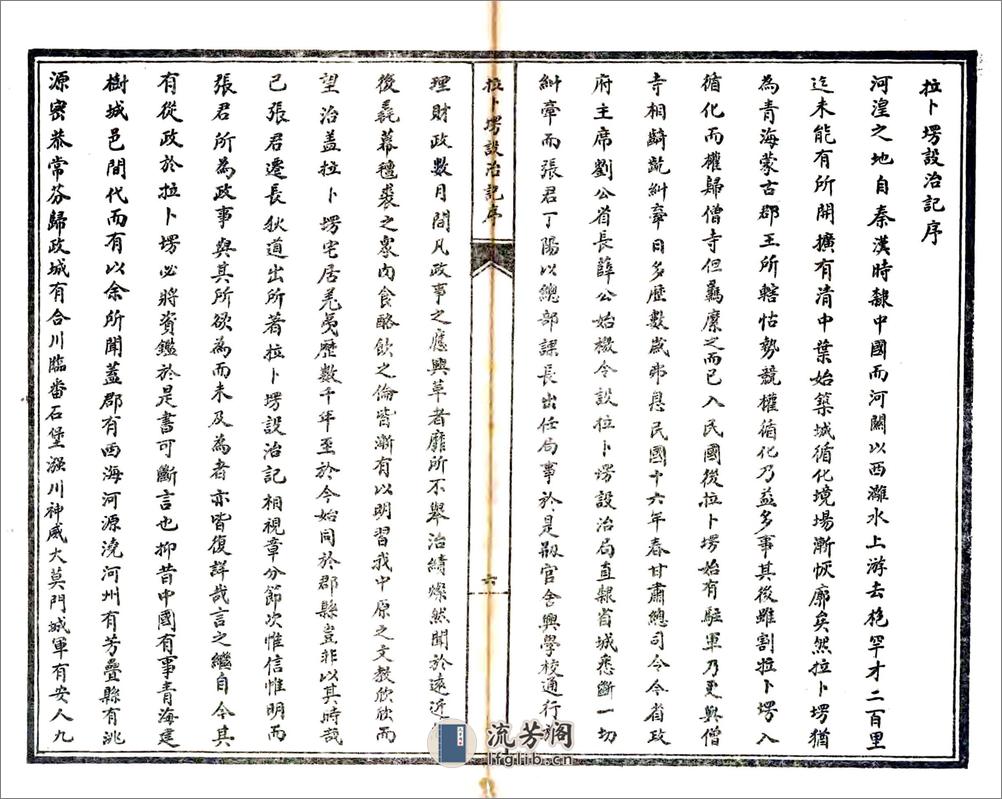 拉卜塄設治記序
河湟之地自秦漢時隸中國而河關以西灕水上游去枹罕才二百里
迄未能有所開擴有清中葉始築城循化境場漸恢廓矣然拉卜塄猶
為青海蒙古郡王所轄怙勢競權循化乃益多事其後雖割拉卜塄入
循化而權歸僧寺但羈縻之而已入民國後拉卜塄始有駐軍乃更與僧
寺相齮齕糾牽日多歷數歲弗息民國十六年春甘肅總司令令省政
府主席劉公省長薛公始檄令設拉卜塄設治局直隸省城悉斷一切
糾牽而張君丁陽以總部課長出任局事於是剏官舍興學校通行
拉卜塄設治記序
六
理財政數月間凡政事之應興革者靡所不舉治績燦然聞於遠近
後毳幕氊裘之衆肉食酪飲之倫皆漸有以明習我中原之文教欣欣而
望治蓋拉卜塄宅居羌夷歷數千年至於今始同於郡縣豈非以其時哉
已張君遷長狄道出所著拉卜塄設治記相視章分節次惟信惟明而
張君所為政事與其所欲為而未及為者亦皆復詳哉言之繼自今其
有從政於拉卜塄必將資鑑於是書可斷言也抑昔中國有事青海建
樹城邑間代而有以余所聞蓋郡有西海河源澆河州有芳疊縣有洮
源密恭常芬歸政城有合川臨番石堡强川神威大莫門城軍有安人九
流芳閣
lfglib.cn